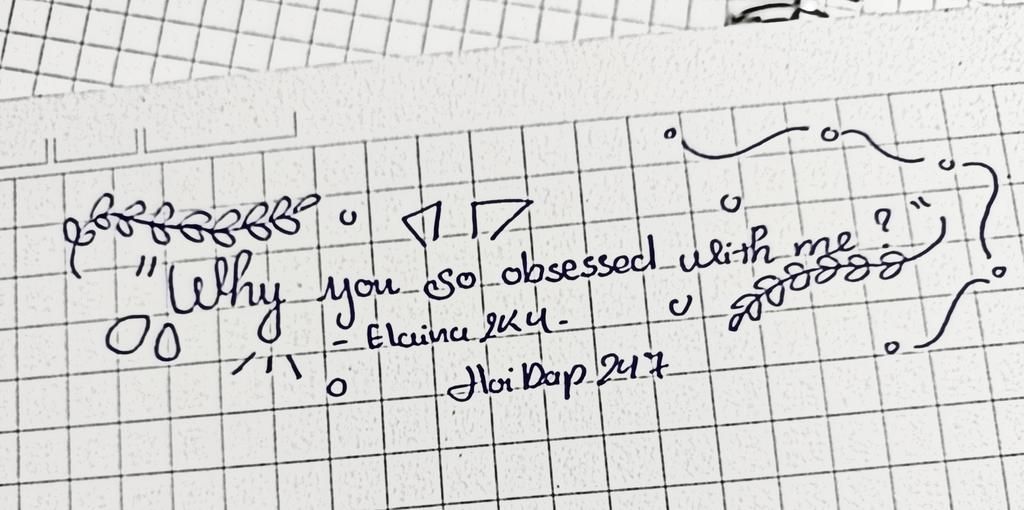 "Why you so obsessed with me?"
- Elaina 2K4 -
HoiDap 247